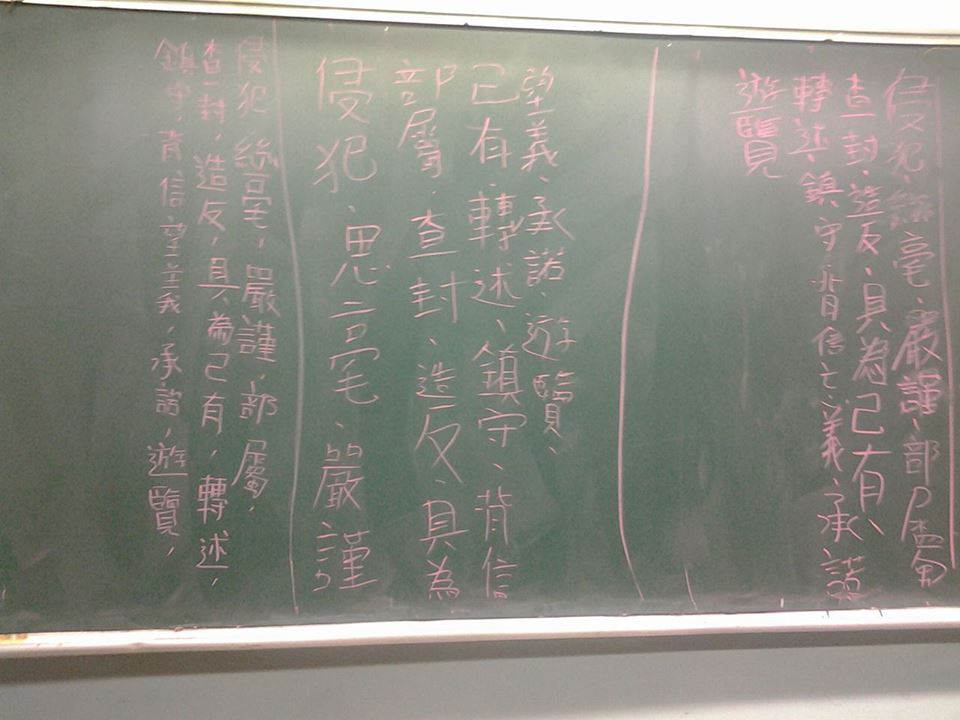 侵犯、絲毫、嚴謹、部屬、
查封、造反、具為己有、
轉述、鎮守、背信亡義、承諾
遊覽
侵犯、嚴謹
部屬、查封、造反、具為
己有、轉述、鎮守、背信
望義、承諾、遊覽、
侵犯,絲毫,嚴謹,部屬,
查封,造反,具為己有,轉述,
鎮守,背信望義,承諾,遊覽,